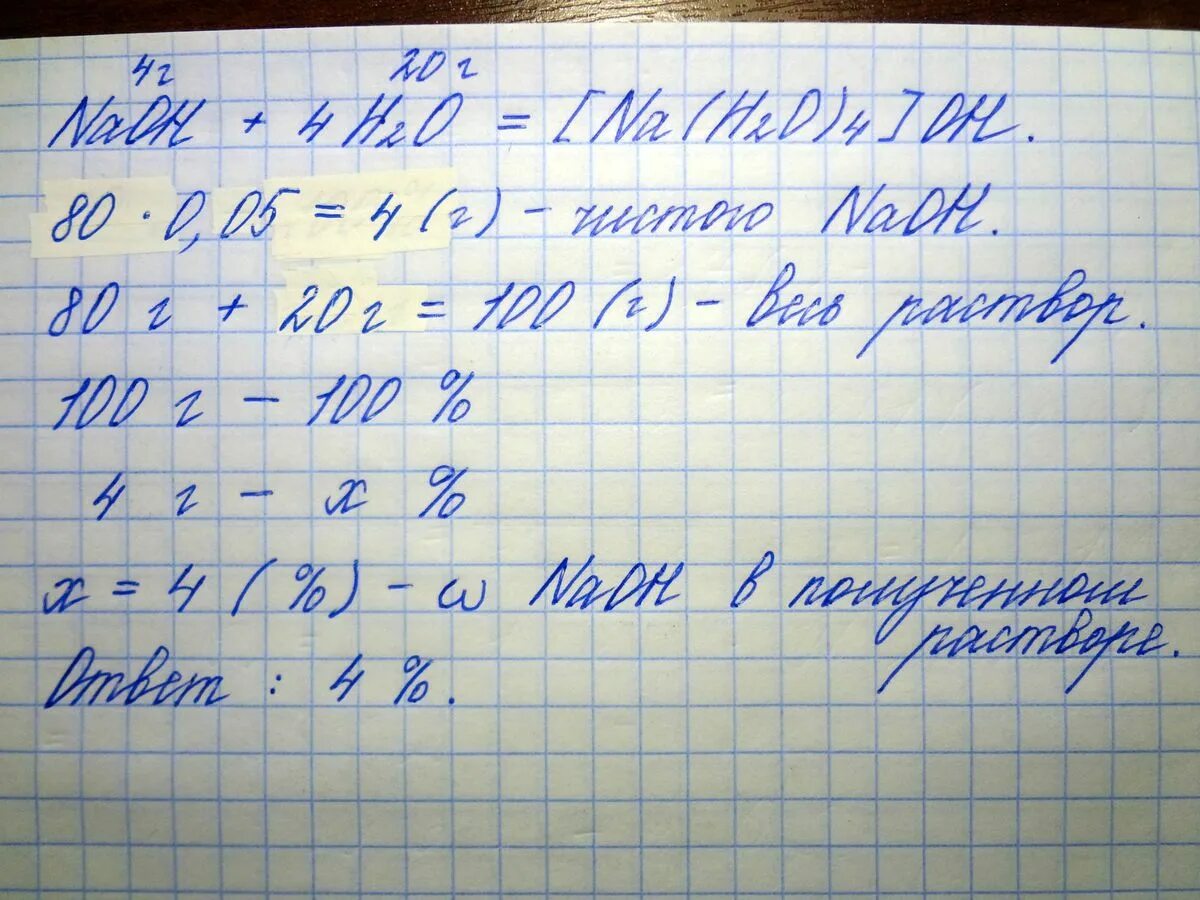 4г 20 г
NaOH + 4 H2O = [Na(H2O)4]OH.
80 · 0,05 = 4 (г) - чистого NaOH.
80 г + 20 г = 100 (г) - весь раствор.
100 г - 100 %
4 г - x %
x = 4 (%) - ω NaOH в полученном
растворе.
Ответ : 4 %.